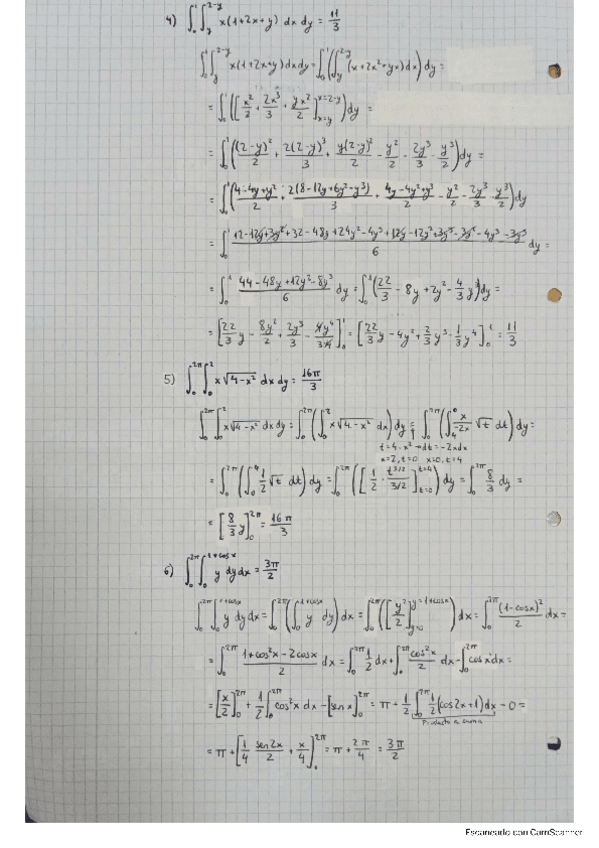 4) ∫₀¹∫_y^{2-y} x(1+2x+y) dx dy = 11/3
∫₀¹∫_y^{2-y} x(1+2x+y) dx dy = ∫₀¹(∫_y^{2-y} (x+2x²+yx) dx) dy =
= ∫₀¹([x²/2 + 2x³/3 + yx²/2]_{x=y}^{x=2-y}) dy =
= ∫₀¹((2-y)²/2 + 2(2-y)³/3 + y(2-y)²/2 - y²/2 - 2y³/3 - y³/2) dy =
= ∫₀¹(4-4y+y²/2 + 2(8-12y+6y²-y³)/3 + 4y-4y²+y³/2 - y²/2 - 2y³/3 - y³/2) dy
= ∫₀¹ 12-12y+3y²+32-48y+24y²-4y³+12y-12y²+3y³-3y²-4y³-3y³/6 dy =
= ∫₀¹ 44-48y+12y²-8y³/6 dy = ∫₀¹(22/3 - 8y + 2y² - 4/3 y³) dy =
= [22/3 y - 8y²/2 + 2y³/3 - 4y⁴/3·4]₀¹ = [22/3 y - 4y² + 2/3 y³ - 1/3 y⁴]₀¹ = 11/3
5) ∫₀^{2π}∫₀² x√4-x² dx dy = 16π/3
∫₀^{2π}∫₀² x√4-x² dx dy = ∫₀^{2π}(∫₀² x√4-x² dx) dy = ∫₀^{2π}(∫₄⁰ x/-2x √t dt) dy =
t=4-x² → dt=-2xdx
x=2, t=0 x=0, t=4
= ∫₀^{2π}(∫₀⁴ 1/2 √t dt) dy = ∫₀^{2π}([1/2 · t^{3/2}/3/2]_{t=0}^{t=4}) dy = ∫₀^{2π} 8/3 dy =
= [8/3 y]₀^{2π} = 16π/3
6) ∫₀^{2π}∫₀^{1+cosx} y dy dx = 3π/2
∫₀^{2π}∫₀^{1+cosx} y dy dx = ∫₀^{2π}(∫₀^{1+cosx} y dy) dx = ∫₀^{2π}([y²/2]_{y=0}^{y=1+cosx}) dx = ∫₀^{2π} (1-cosx)²/2 dx =
= ∫₀^{2π} 1+cos²x-2cosx/2 dx = ∫₀^{2π} 1/2 dx + ∫₀^{2π} cos²x/2 dx - ∫₀^{2π} cosx dx =
= [x/2]₀^{2π} + 1/2 ∫₀^{2π} cos²x dx - [sen x]₀^{2π} = π + 1/2 ∫₀^{2π} 1/2 (cos2x+1) dx - 0 =
Producto a suma
= π + [1/4 sen2x/2 + x/4]₀^{2π} = π + 2π/4 = 3π/2
Escaneado con CamScanner